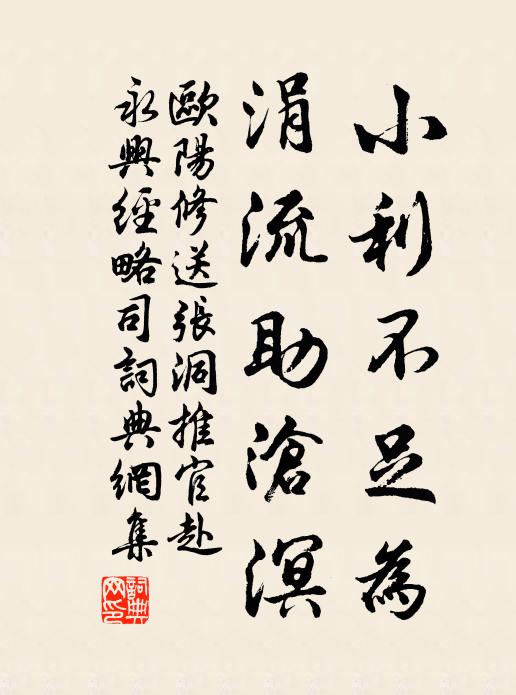 小利不足為
涓流助滄溟
歐陽修送張洞推官赴
永興經略司詞典網集
詞典
网印